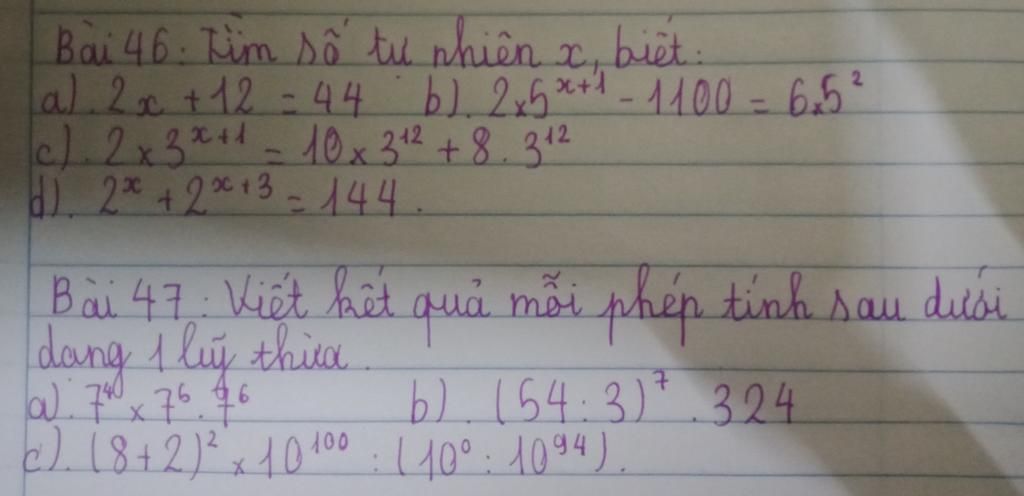 Bài 46: Tìm số tự nhiên x, biết:
a). 2x + 12 = 44 b). 2×5^{x+1} - 1100 = 6×5²
c). 2 × 3^{x+1} = 10 × 3¹² + 8 . 3¹²
d). 2ˣ + 2^{x+3} = 144.
Bài 47: Viết kết quả mỗi phép tính sau dưới
dạng 1 luỹ thừa.
a). 7⁴ × 7⁵ . 7⁶ b). (54 : 3)⁷ . 324
c). (8+2)² × 10¹⁰⁰ : (10⁰ : 10⁹⁴).